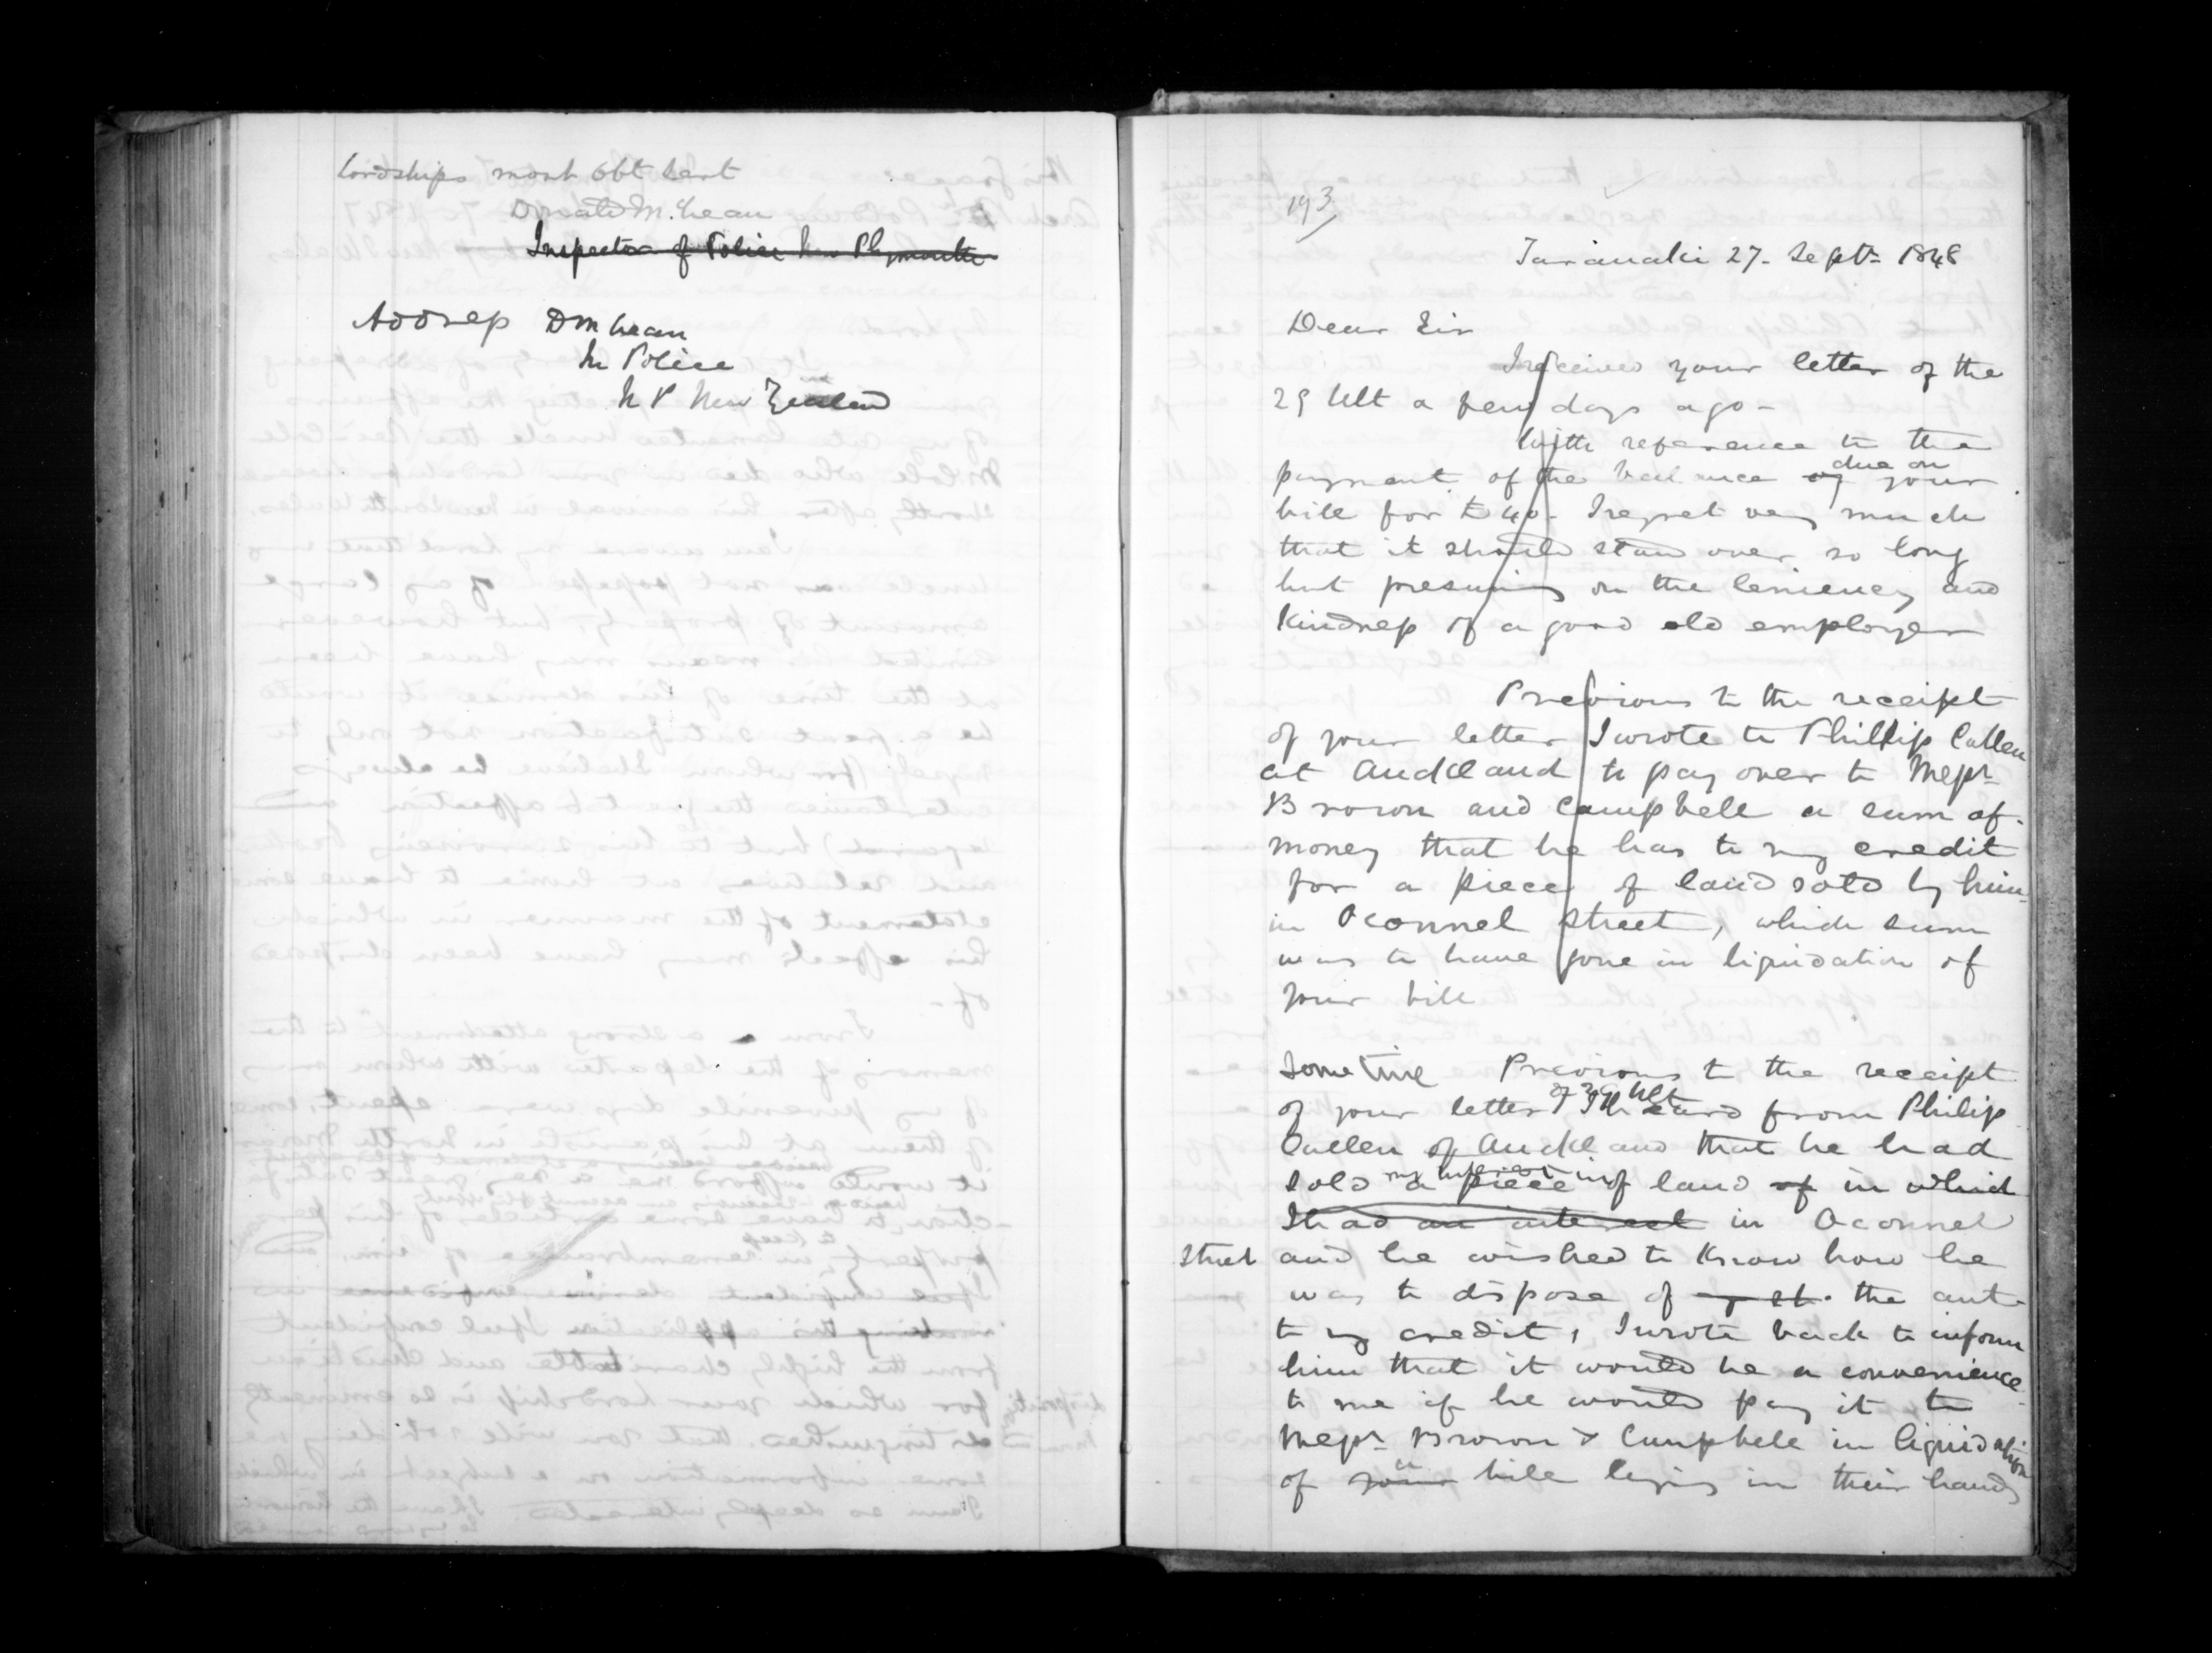 Lordships most obt Sert
Donald McLean
Inspector of Police New Plymouth
Address DMcLean
In Police
N P New Zealand
193
Taranaki 27. Septr 1848
Dear Sir
I received your letter of the
29 Ult a few days ago -
With reference to the
due on
payment of the balance of your
bill for £40 - I regret very much
that it should stand over so long
but presuming on the leniency and
kindness of a good old employer
Previous to the receipt
of your letter I wrote to Phillip Callen
at Auckland to pay over to Messrs
Brown and Campbell a sum of
money that he has to my credit
for a piece of land sold by him
in Oconnel Street, which sum
was to have gone in liquidation of
your bill
Sometime Previous to the receipt
of 29 Ult
of your letter I heard from Philip
Callen of Auckland that he had
my interest in
sold a piece of land of in which
I had an interest in Oconnel
Street and he wished to know how he
was to dispose of the amt
to my credit, I wrote back to inform
him that it would be a convenience
to me if he would pay it to
Messrs Brown & Campbell in liquidation
a
of your bill lying in their hands